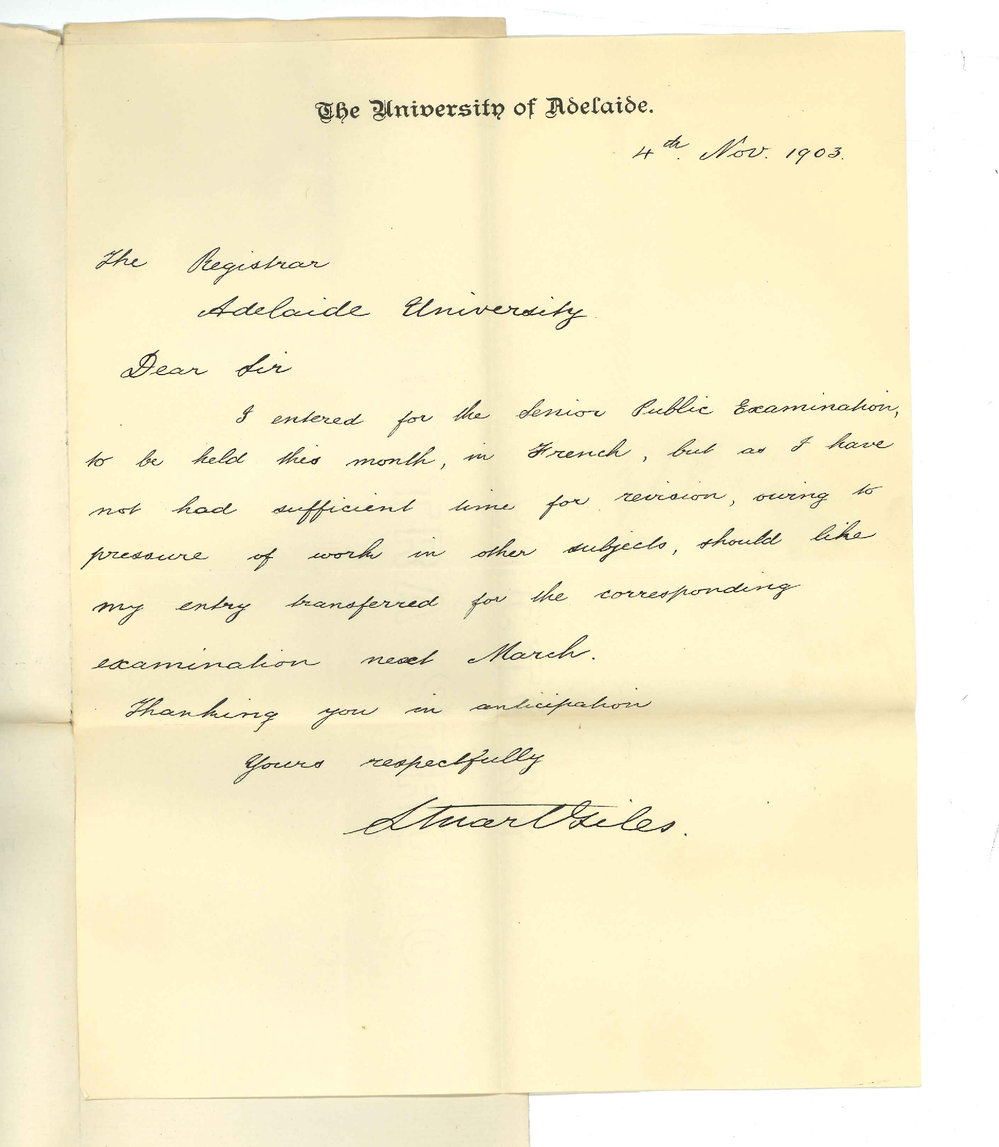 The University of Adelaide.
4th. Nov. 1903.
The Registrar
Adelaide University.
Dear Sir
I entered for the Senior Public Examination,
to be held this month, in French, but as I have
not had sufficient time for revision, owing to
pressure of work in other subjects, should like
my entry transferred for the corresponding
examination next March.
Thanking you in anticipation
Yours respectfully
Stuart Giles.